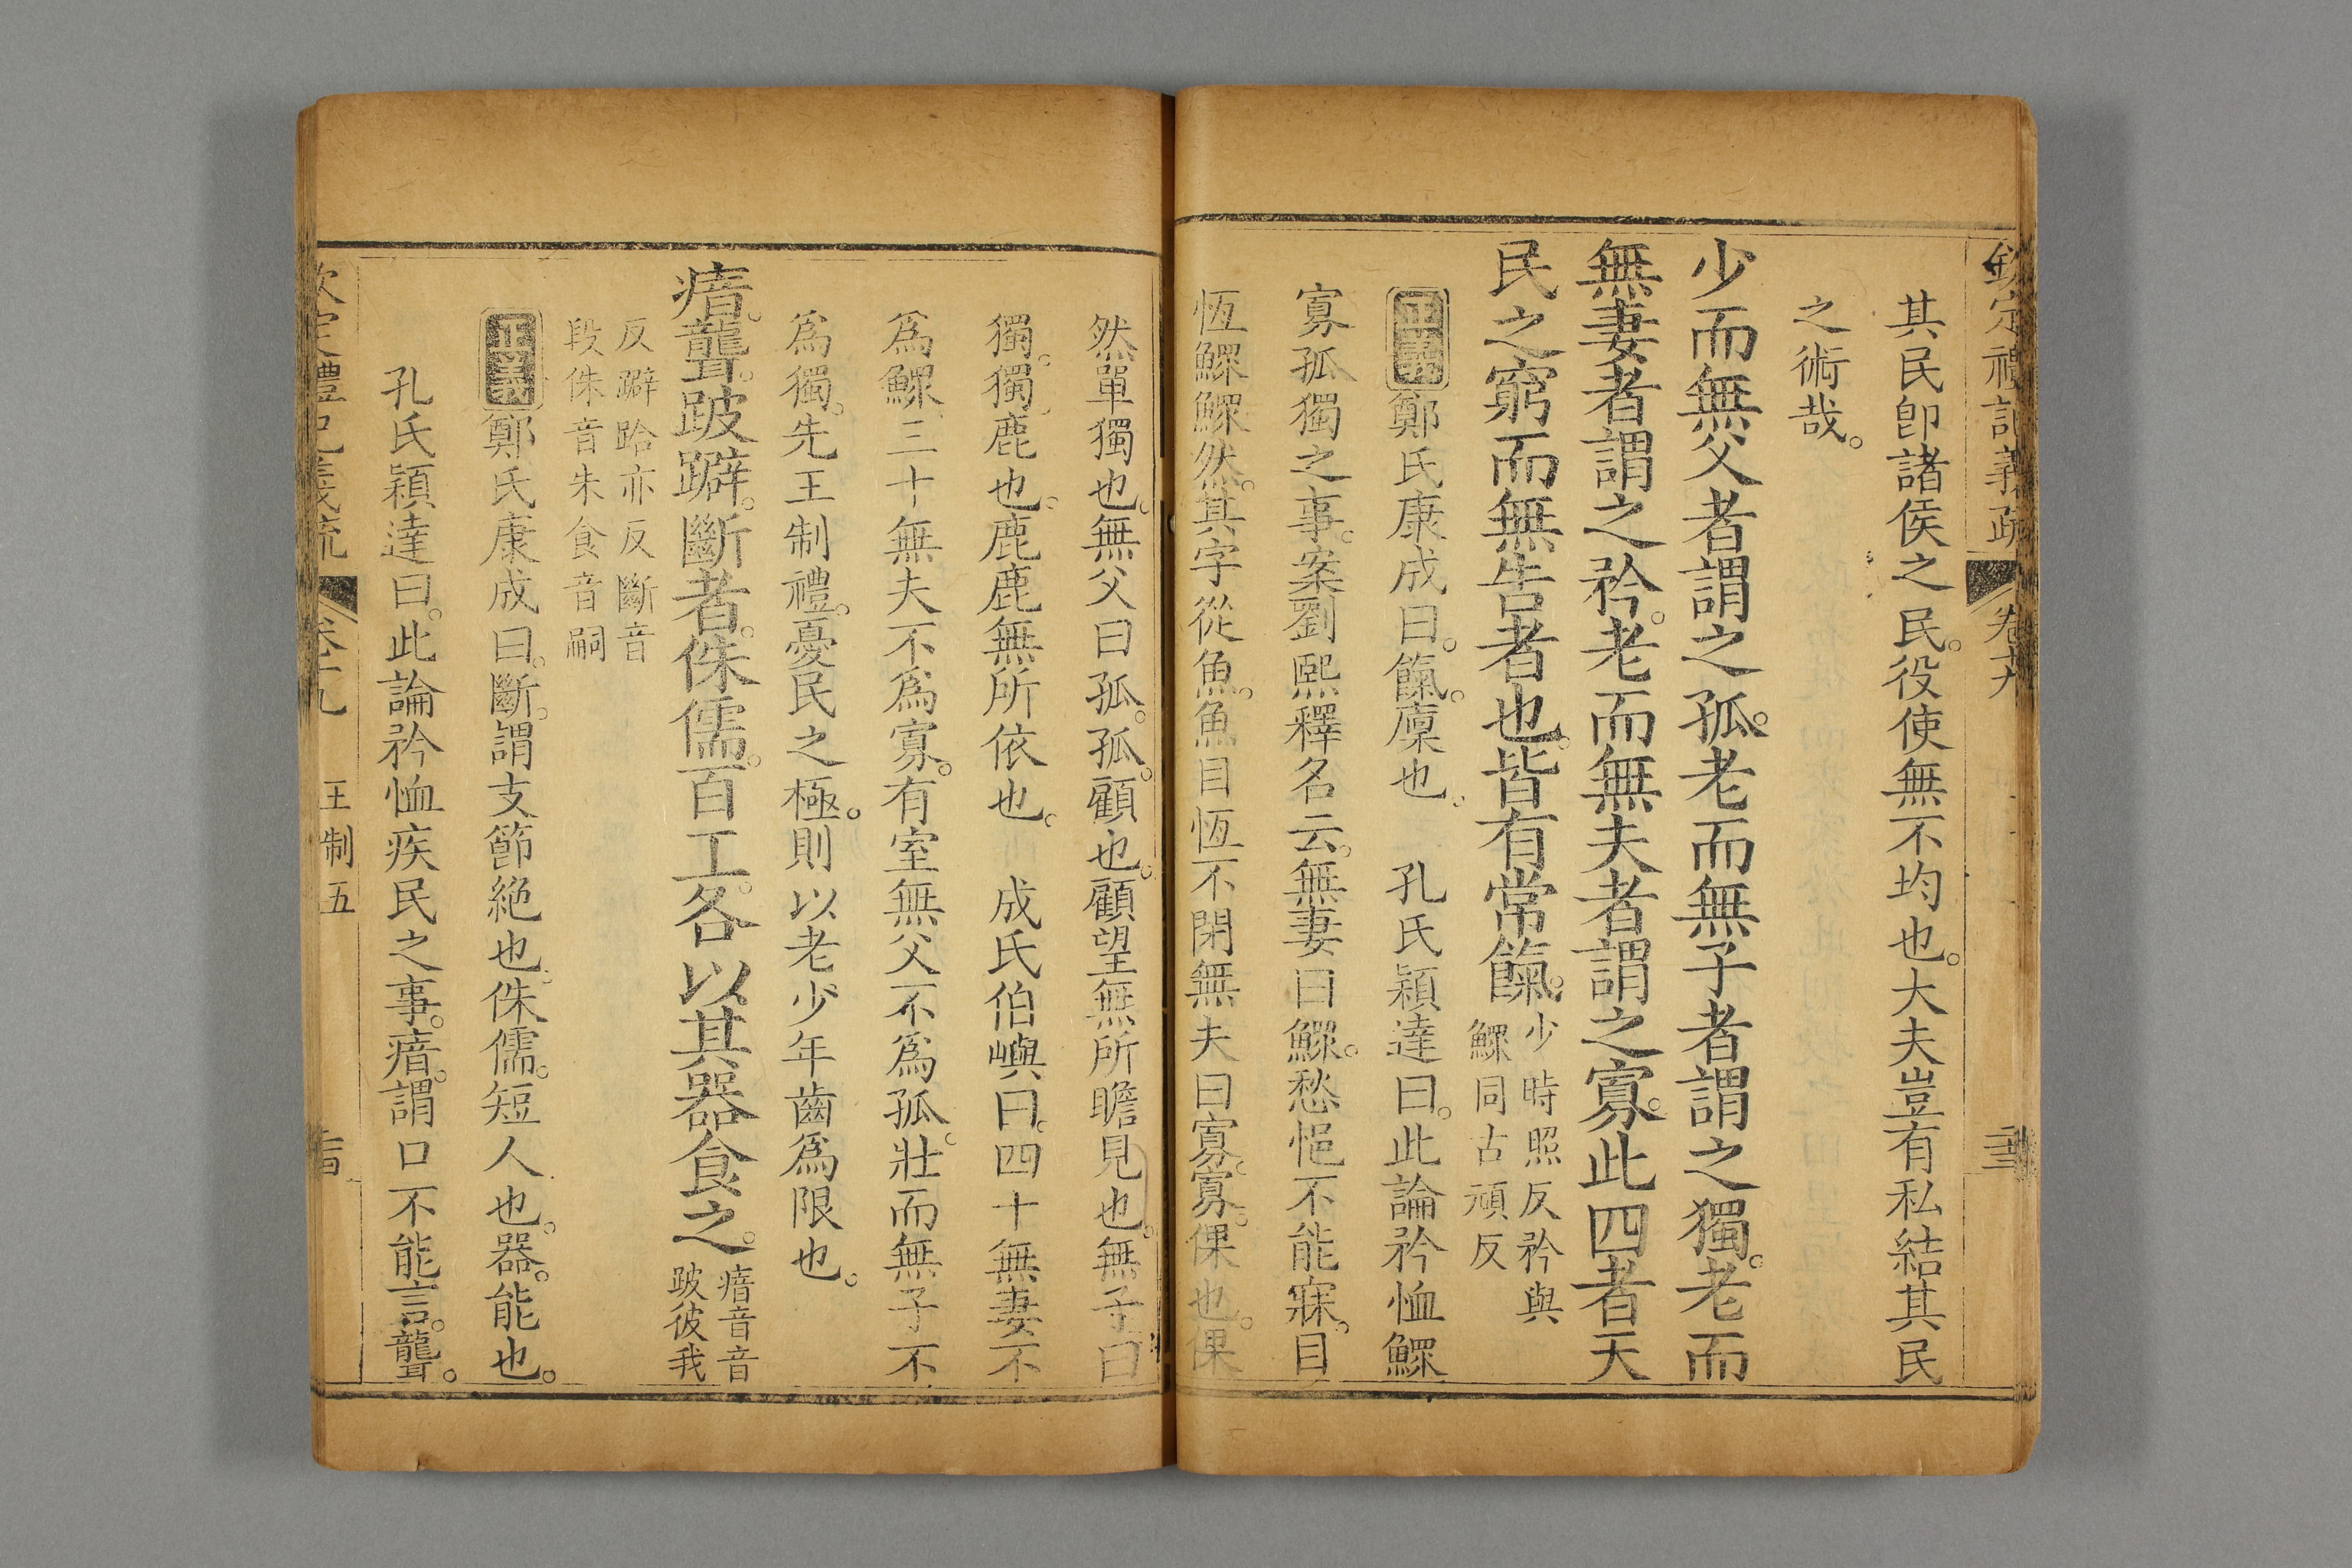 欽定禮記義疏 卷十九
其民卽諸侯之民。役使無不均也。大夫豈有私結其民
之術哉。
少而無父者謂之孤。老而無子者謂之獨。老而
無妻者謂之矜。老而無夫者謂之寡。此四者天
民之窮而無告者也。皆有常餼。少時照反矜與
鰥同古頑反
正義鄭氏康成曰。餼。廩也。 孔氏穎達曰。此論矜恤鰥
寡孤獨之事。案劉熙釋名云。無妻曰鰥。愁悒不能寐。目
恆鰥鰥然。其字從魚。魚目恆不閉無夫曰寡。寡。倮也。倮
然單獨也。無父曰孤。孤。顧也。顧望無所瞻見也。無子曰
獨。獨。鹿也。鹿鹿無所依也。 成氏伯嶼曰。四十無妻不
爲鰥。三十無夫不爲寡。有室無父不爲孤。壯而無子不
爲獨。先王制禮。憂民之極。則以老少年齒爲限也。
瘖。聾。跛躃。斷者。侏儒。百工。各以其器食之。瘖音音
跛彼我
反躃跲亦反斷音
段侏音朱食音嗣
正義鄭氏康成曰。斷。謂支節絕也。侏儒。短人也。器。能也。
孔氏穎達曰。此論矜恤疾民之事。瘖。謂口不能言。聾。
欽定禮記義疏 卷十九 王制五